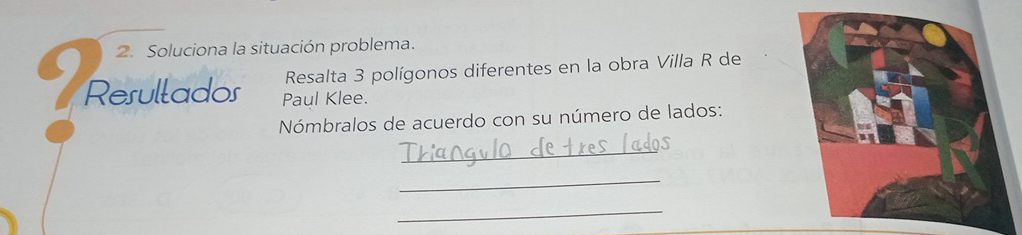 2. Soluciona la situación problema.
Resultados
Resalta 3 polígonos diferentes en la obra Villa R de
Paul Klee.
Nómbralos de acuerdo con su número de lados:
Triangulo de tres lados
R